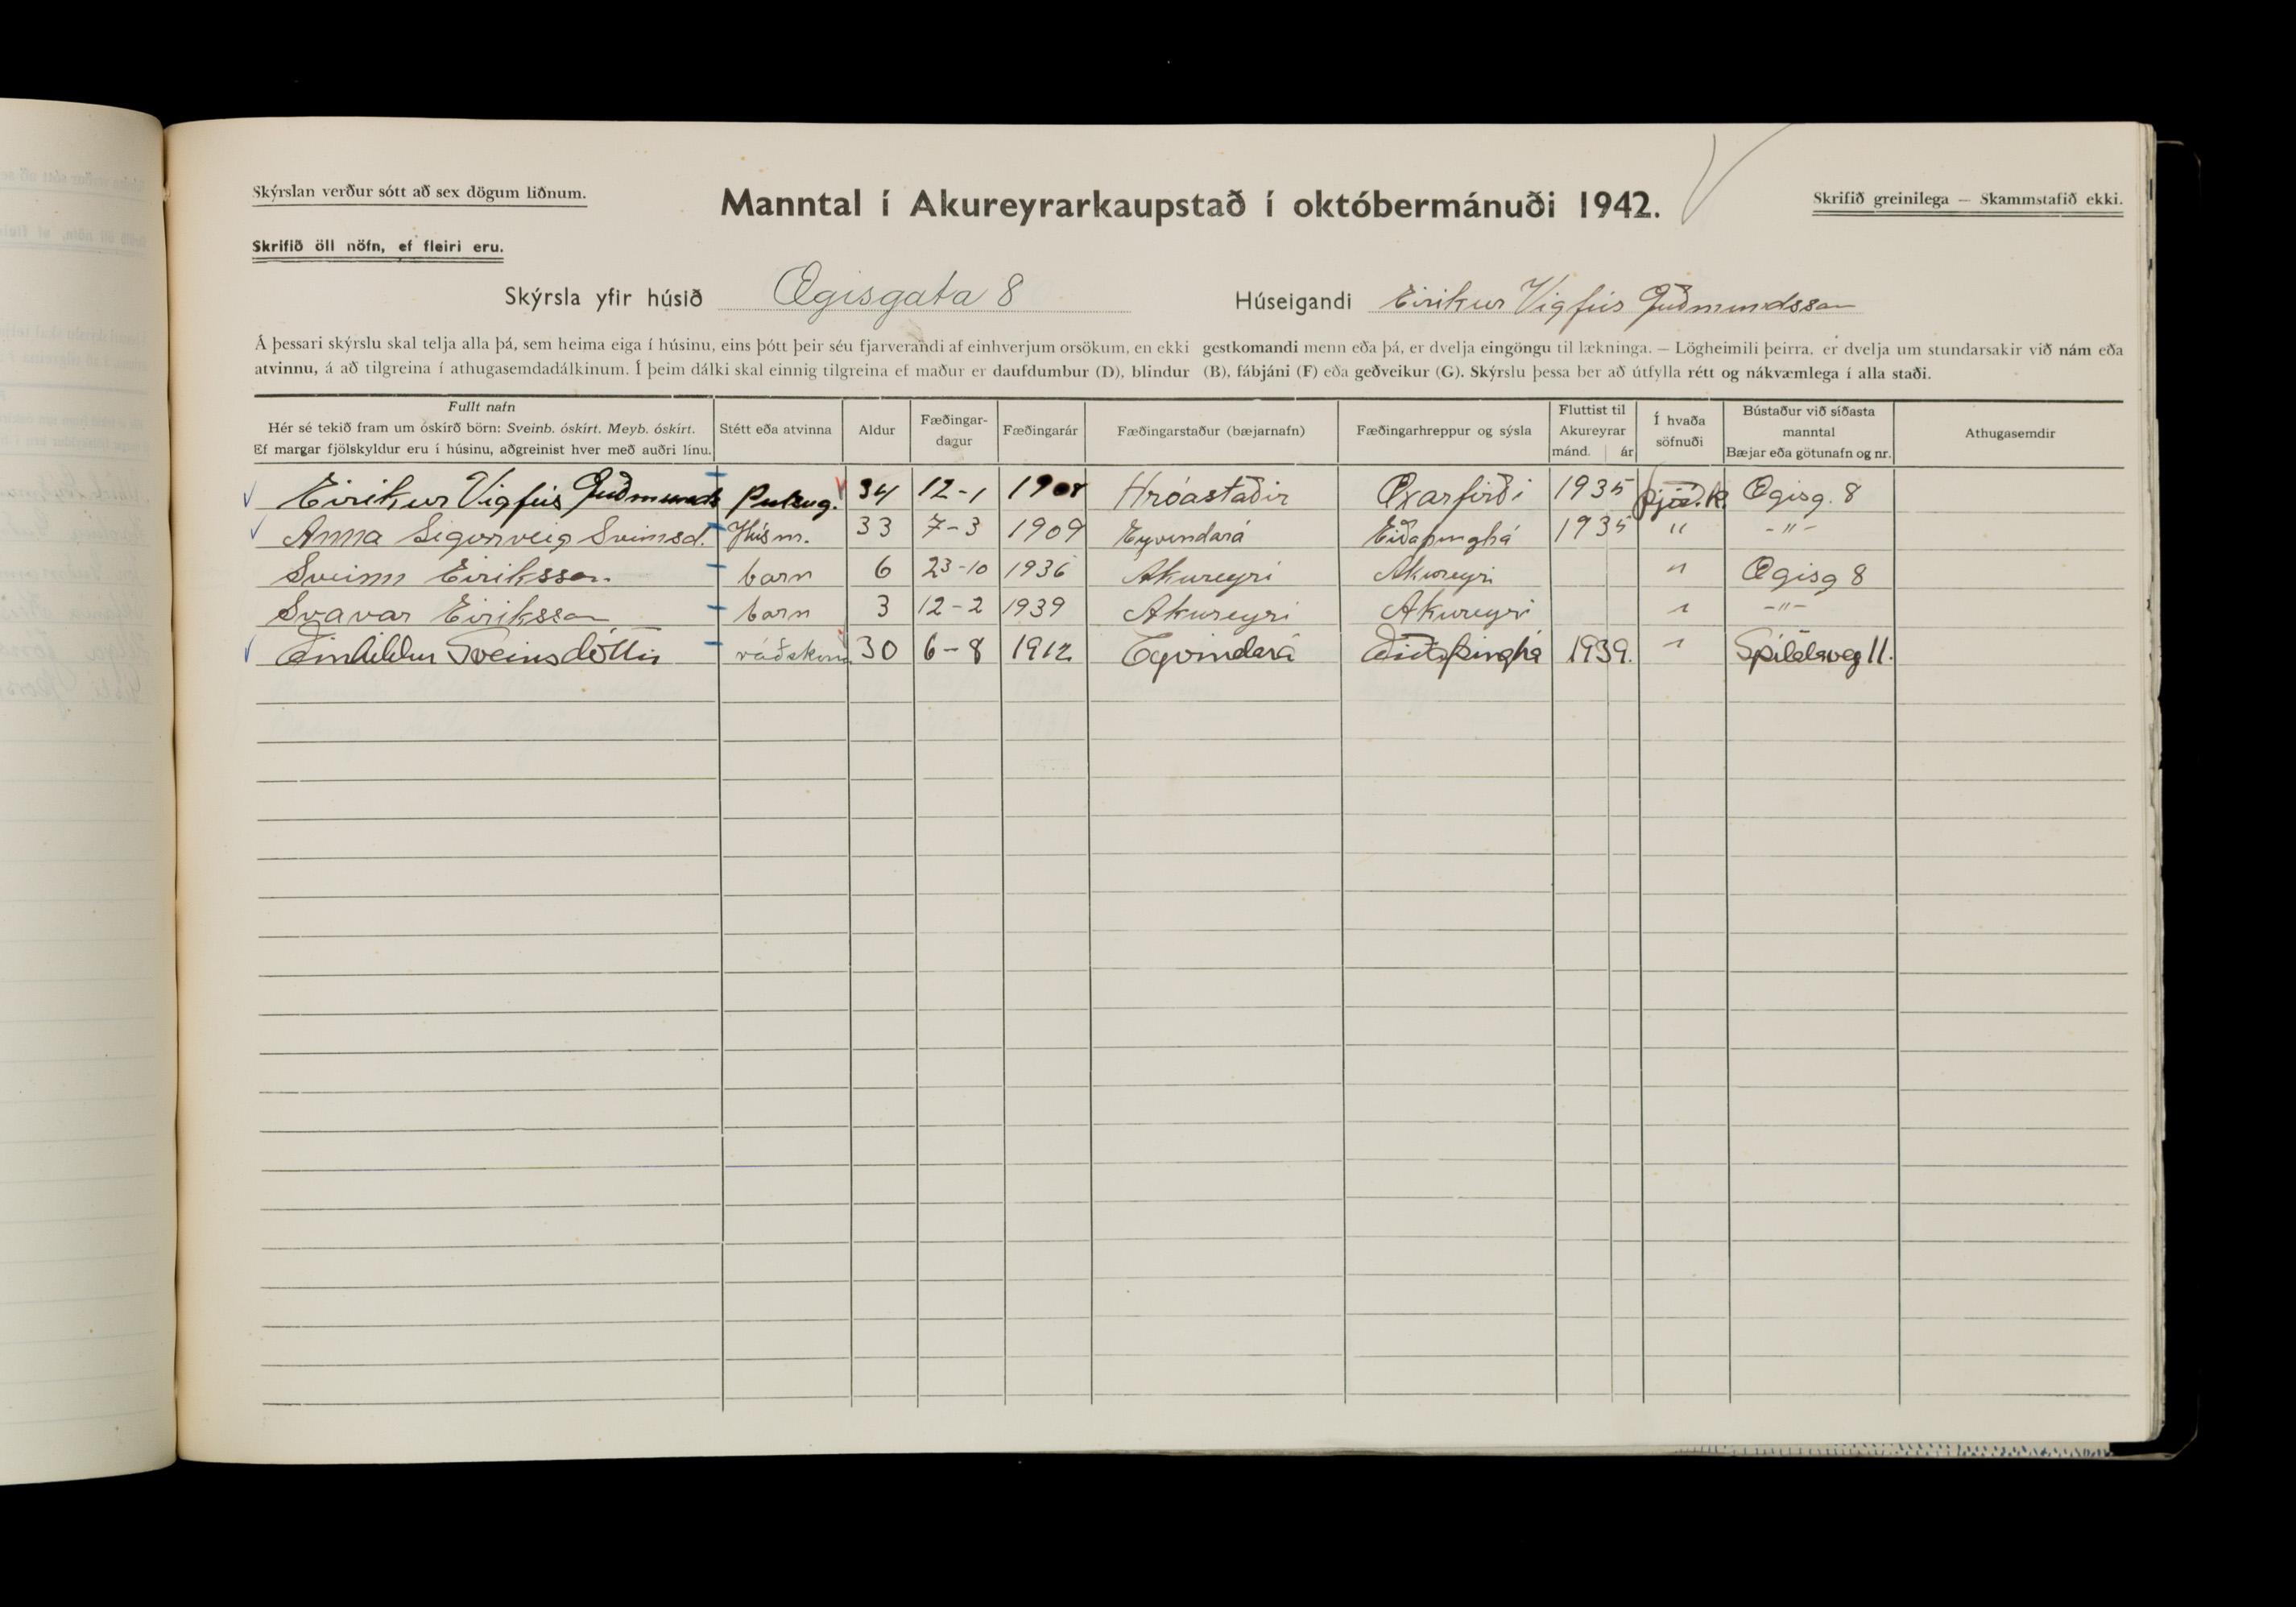 Skýrslan verður sótt að sex dögum liðnum.
Manntal í Akureyrarkaupstað í októbermánuði 1942.
Skrifið greinilega — Skammstafið ekki.
Skrifið öll nöfn, ef fleiri eru.
Skýrsla yfir húsið Ægisgata 8 Húseigandi Eirikur Vigfús Guðmundsson
Á þessari skýrslu skal telja alla þá, sem heima eiga í húsinu, eins þótt þeir séu fjarverandi af einhverjum orsökum, en ekki gestkomandi menn eða þá, er dvelja eingöngu til lækninga. — Lögheimili þeirra, er dvelja um stundarsakir við nám eða
atvinnu, á að tilgreina í athugasemdadálkinum. Í þeim dálki skal einnig tilgreina ef maður er daufdumbur (D), blindur (B), fábjáni (F) eða geðveikur (G). Skýrslu þessa ber að útfylla rétt og nákvæmlega í alla staði.
Fullt nafn
Hér sé tekið fram um óskírð börn: Sveinb. óskírt. Meyb. óskírt.
Ef margar fjölskyldur eru í húsinu, aðgreinist hver með auðri línu.
Stétt eða atvinna
Aldur
Fæðingar-
dagur
Fæðingarár
Fæðingarstaður (bæjarnafn)
Fæðingarhreppur og sýsla
Fluttist til
Akureyrar
mánd. ár
Í hvaða
söfnuði
Bústaður við síðasta
manntal
Bæjar eða götunafn og nr.
Athugasemdir
Eirikur Vigfús Guðmunds 34 12-1 1908 Hróastaðir Öxarfirði 1935 þjóð.k. Ægisg. 8
Anna Sigurveig Sveinsd. Húsm. 33 7-3 1909 Eyvindará Eiðaþinghá 1935 " -"-
Sveinn Eiriksson barn 6 23-10 1936 Akureyri Akureyri " Ægisg 8
Svavar Eiriksson barn 3 12-2 1939 Akureyri Akureyri " -"-
Sveinsdóttir ráðskona 30 6-8 1912 Eyvindará Eiðaþinghá 1939. " Spítalaveg 11.